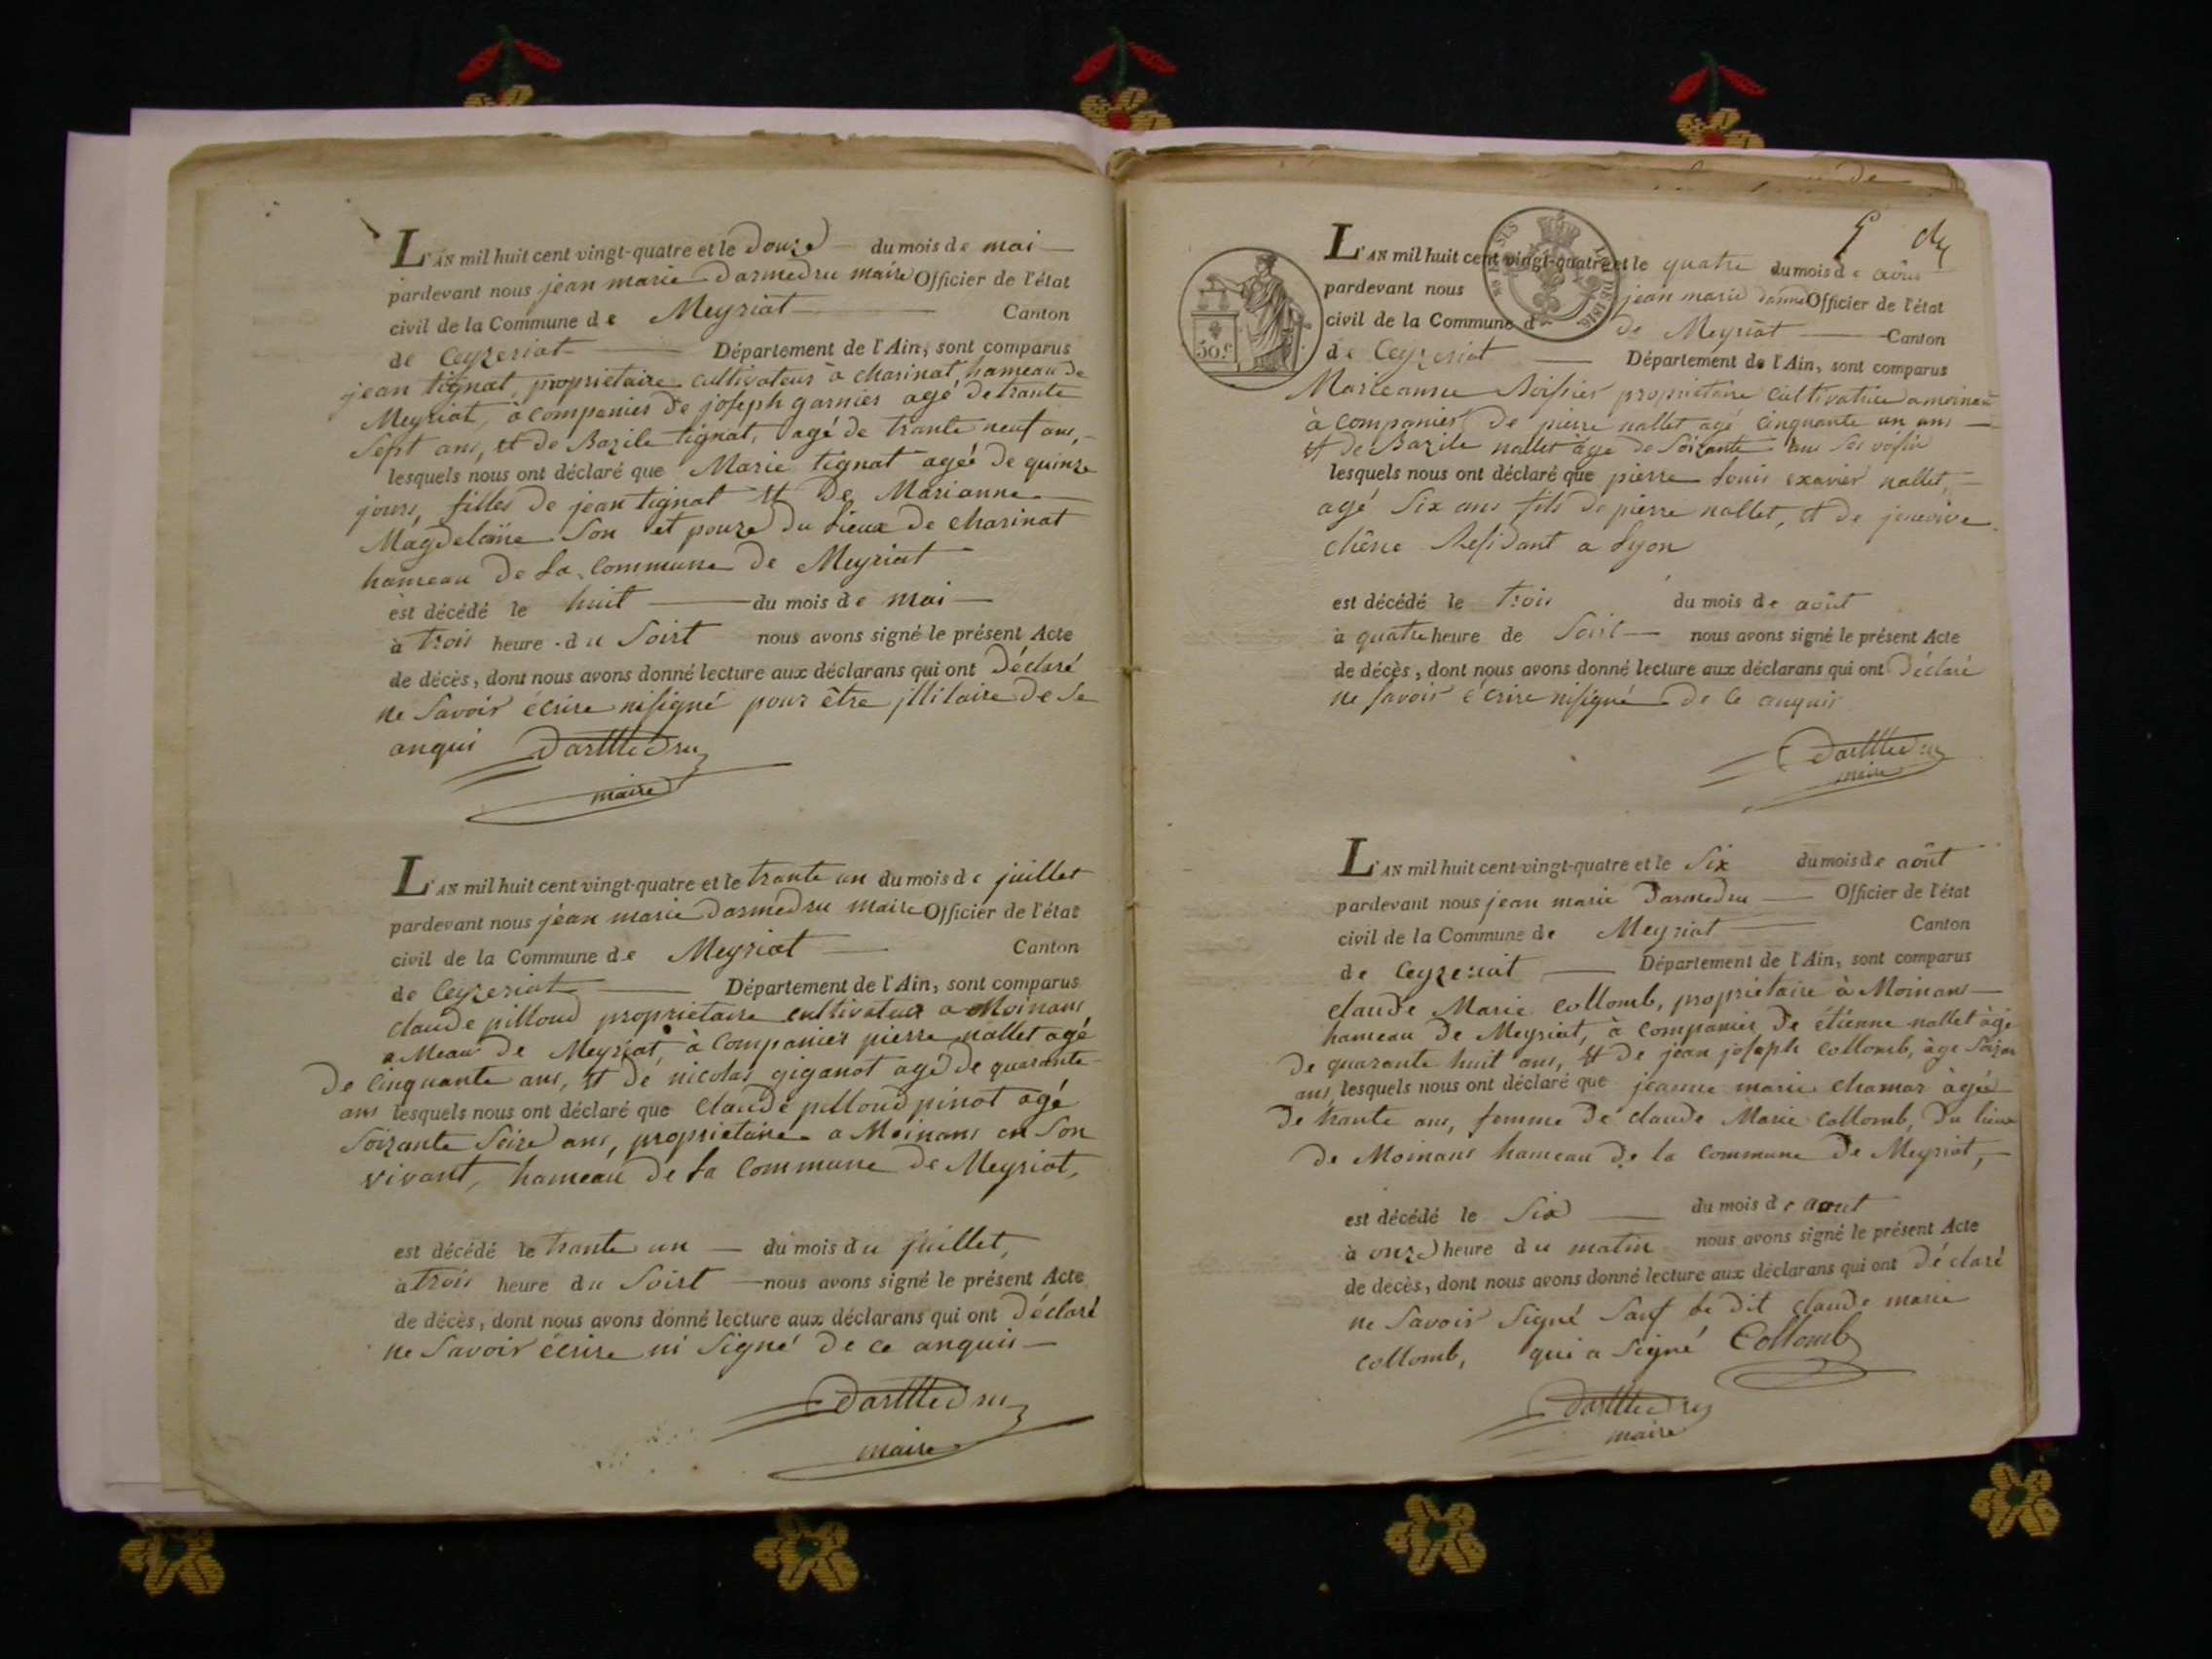 L'AN mil huit cent vingt-quatre et le douze du mois de mai
pardevant nous jean marie Darmedru maire Officier de l'état
civil de la Commune de Meyriat Canton
de Ceyzeriat Département de l'Ain, sont comparus
jean tignat, proprietaire cultivateur a charinat hameau de
Meyriat, à companier de joseph garnier agé de trante
Sept ans, et de Bazile tignat, agé de trante neuf ans,
lesquels nous ont déclaré que Marie tignat agée de quinze
jours, filles de jean tignat et de Marianne
Magdelaine Son et pouze du Lieux de charinat
hameau de La Commune de Meyriat
est décédé le huit du mois de mai
à trois heure du Soirt nous avons signé le présent Acte
de décès, dont nous avons donné lecture aux déclarans qui ont Déclaré
ne Savoir écrire ni signé pour être jllitaire de Se
anqui Darmedru
maire
L'AN mil huit cent vingt-quatre et le trante un du mois de juillet
pardevant nous jean marie Darmedru maire Officier de l'état
civil de la Commune de Meyriat Canton
de Ceyzeriat Département de l'Ain, sont comparus
claude pilloud proprietaire cultivateur a Moinans,
a Meau de Meyriat, à companier pierre nallet agé
De Cinquante ans, et de nicolas giganot agé de quarante
ans lesquels nous ont déclaré que Claude pilloud pinot agé
Soizante Seize ans, proprietaire a Moinans en Son
vivant, hameau de La Commune de Meyriat,
est décédé le trante un du mois du juillet,
à trois heure du Soirt nous avons signé le présent Acte
de décès, dont nous avons donné lecture aux déclarans qui ont Déclaré
ne Savoir écrire ni Signé de ce anquis
Darmedru
maire
de
5
L'AN mil huit cent vingt-quatre et le quatre du mois de août
pardevant nous jean marie Officier de l'état
civil de la Commune de Meyriat Canton
50.c
LOI DE 1816
de Ceyzeriat Département de l'Ain, sont comparus
Marieanne proprietaire Cultivatrice
à companier de pierre nallet agé Cinquante un ans
et de Bazile nallet agé de Soizante ans Ses
lesquels nous ont déclaré que pierre Louis exavier nallet,
agé Six ans fils de pierre nallet, et de jenevive
chêne Residant a Lyon
est décédé le trois du mois de août
à quatre heure de Soirt nous avons signé le présent Acte
de décès, dont nous avons donné lecture aux déclarans qui ont Déclaré
ne savoir écrire ni signé de ce anquis
Darmedru
maire
L'AN mil huit cent vingt-quatre et le Six du mois de août
pardevant nous jean marie Darmedru Officier de l'état
civil de la Commune de Meyriat Canton
de Ceyzeriat Département de l'Ain, sont comparus
claude Marie Collomb, proprietaire à Moinans
hameau de Meyriat, à companier de étienne nallet àgé
De quarante huit ans, et de jean joseph Collomb, àgé
ans, lesquels nous ont déclaré que jeanne marie chamar àgée
De trante ans, femme de claude Marie Collomb, Du lieux
de Moinans hameau de la Commune de Meyriat,
est décédé le Six du mois de aout
à onze heure du matin nous avons signé le présent Acte
de décès, dont nous avons donné lecture aux déclarans qui ont Déclaré
ne Savoir Signé Sauf Le dit claude marie
Collomb, qui a Signé Collomb
Darmedru
maire